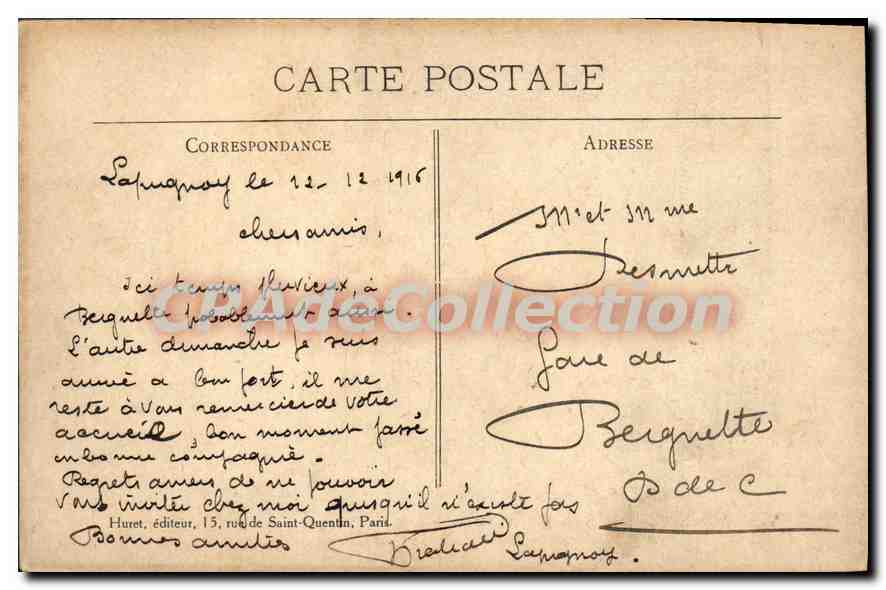 CARTE POSTALE
CORRESPONDANCE
Lapugnoy le 12-12 1916
chers amis,
Ici temps pluvieux, à
Berguette probablement aussi.
L'autre dimanche je suis
arrivé à bon port, il me
reste à vous remercier de votre
accueil, bon moment passé
en bonne compagnie.
Regrets amers de ne pouvoir
vous inviter chez moi puisqu'il n'existe pas
Bonnes amitiés
Lapugnoy.
Huret, éditeur, 15, rue de Saint-Quentin, Paris.
ADRESSE
Mr et Mme
Desmettre
Gare de
Berguette
P de C
CPAdeCollection.com